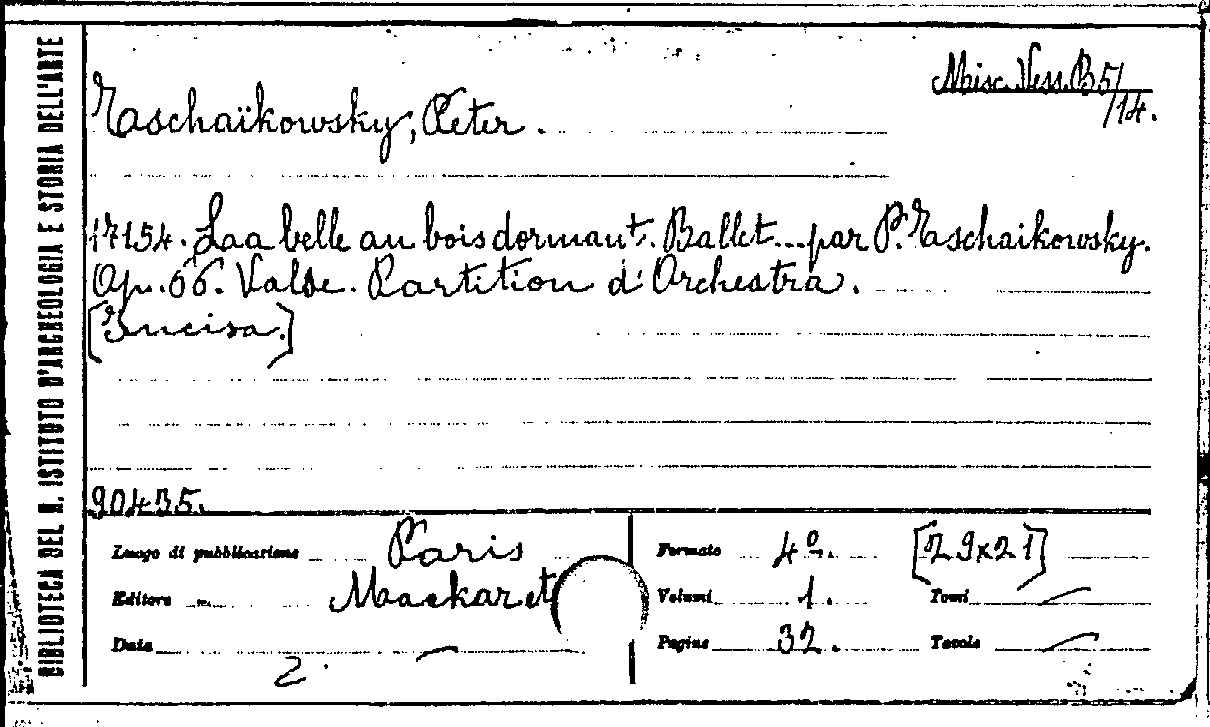 BIBLIOTECA DEL R. ISTITUTO D'ARCHEOLOGIA E STORIA DELL'ARTE
Misc. Vess. B 5/14.
Taschaïkowsky, Peter.
17154. Laa belle au bois dormant. Ballet... par P. Taschaikowsky.
Op. 66. Valse. Partition d'Orchestra.
[Incisa.]
90435.
Luogo di pubblicazione Paris
Formato 4º. [29x21]
Editore Mackar et
Volumi 1. Tomi —
Data —
Pagine 32. Tavole —
2.